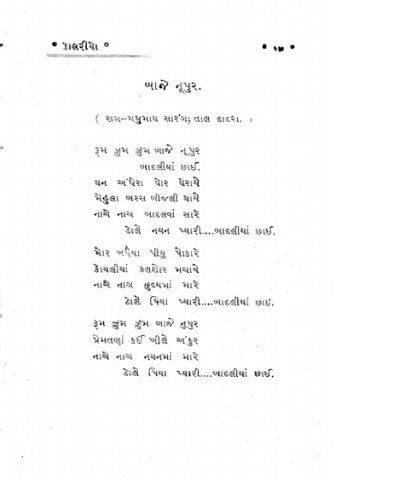 • ડાલરીયો •
બાજે નૂપુર.
( રાગ–મધુમાધ સારંગ; તાલ દાદરા. )
રૂમ ઝુમ ઝુમ બાજે નૂપુર
બાદલીયાં છાઈ.
ઘન અંધેરા ઘોર ઘેરાયે
મેહુલા બરસ બીજલી થાયે
નાચે નાચ બાદલવાં સારે
ડોલે નયન પ્યારી....બાદલીયાં છાઈ.
મોર બપૈયા પીયુ પોકારે
કોયલીયાં કલશોર મચાવે
નાચે નાચ હૃદયમાં મારે
ડોલે પિયા પ્યારી....બાદલીયાં છાઇ.
રૂમ ઝુમ ઝુમ બાજે નુપુર
પ્રેમતણાં કઈ ખીલે અંકુર
નાચે નાચ નયનમાં મારે
ડોલે પિયા પ્યારી....બાદલીયાં છાઈ.